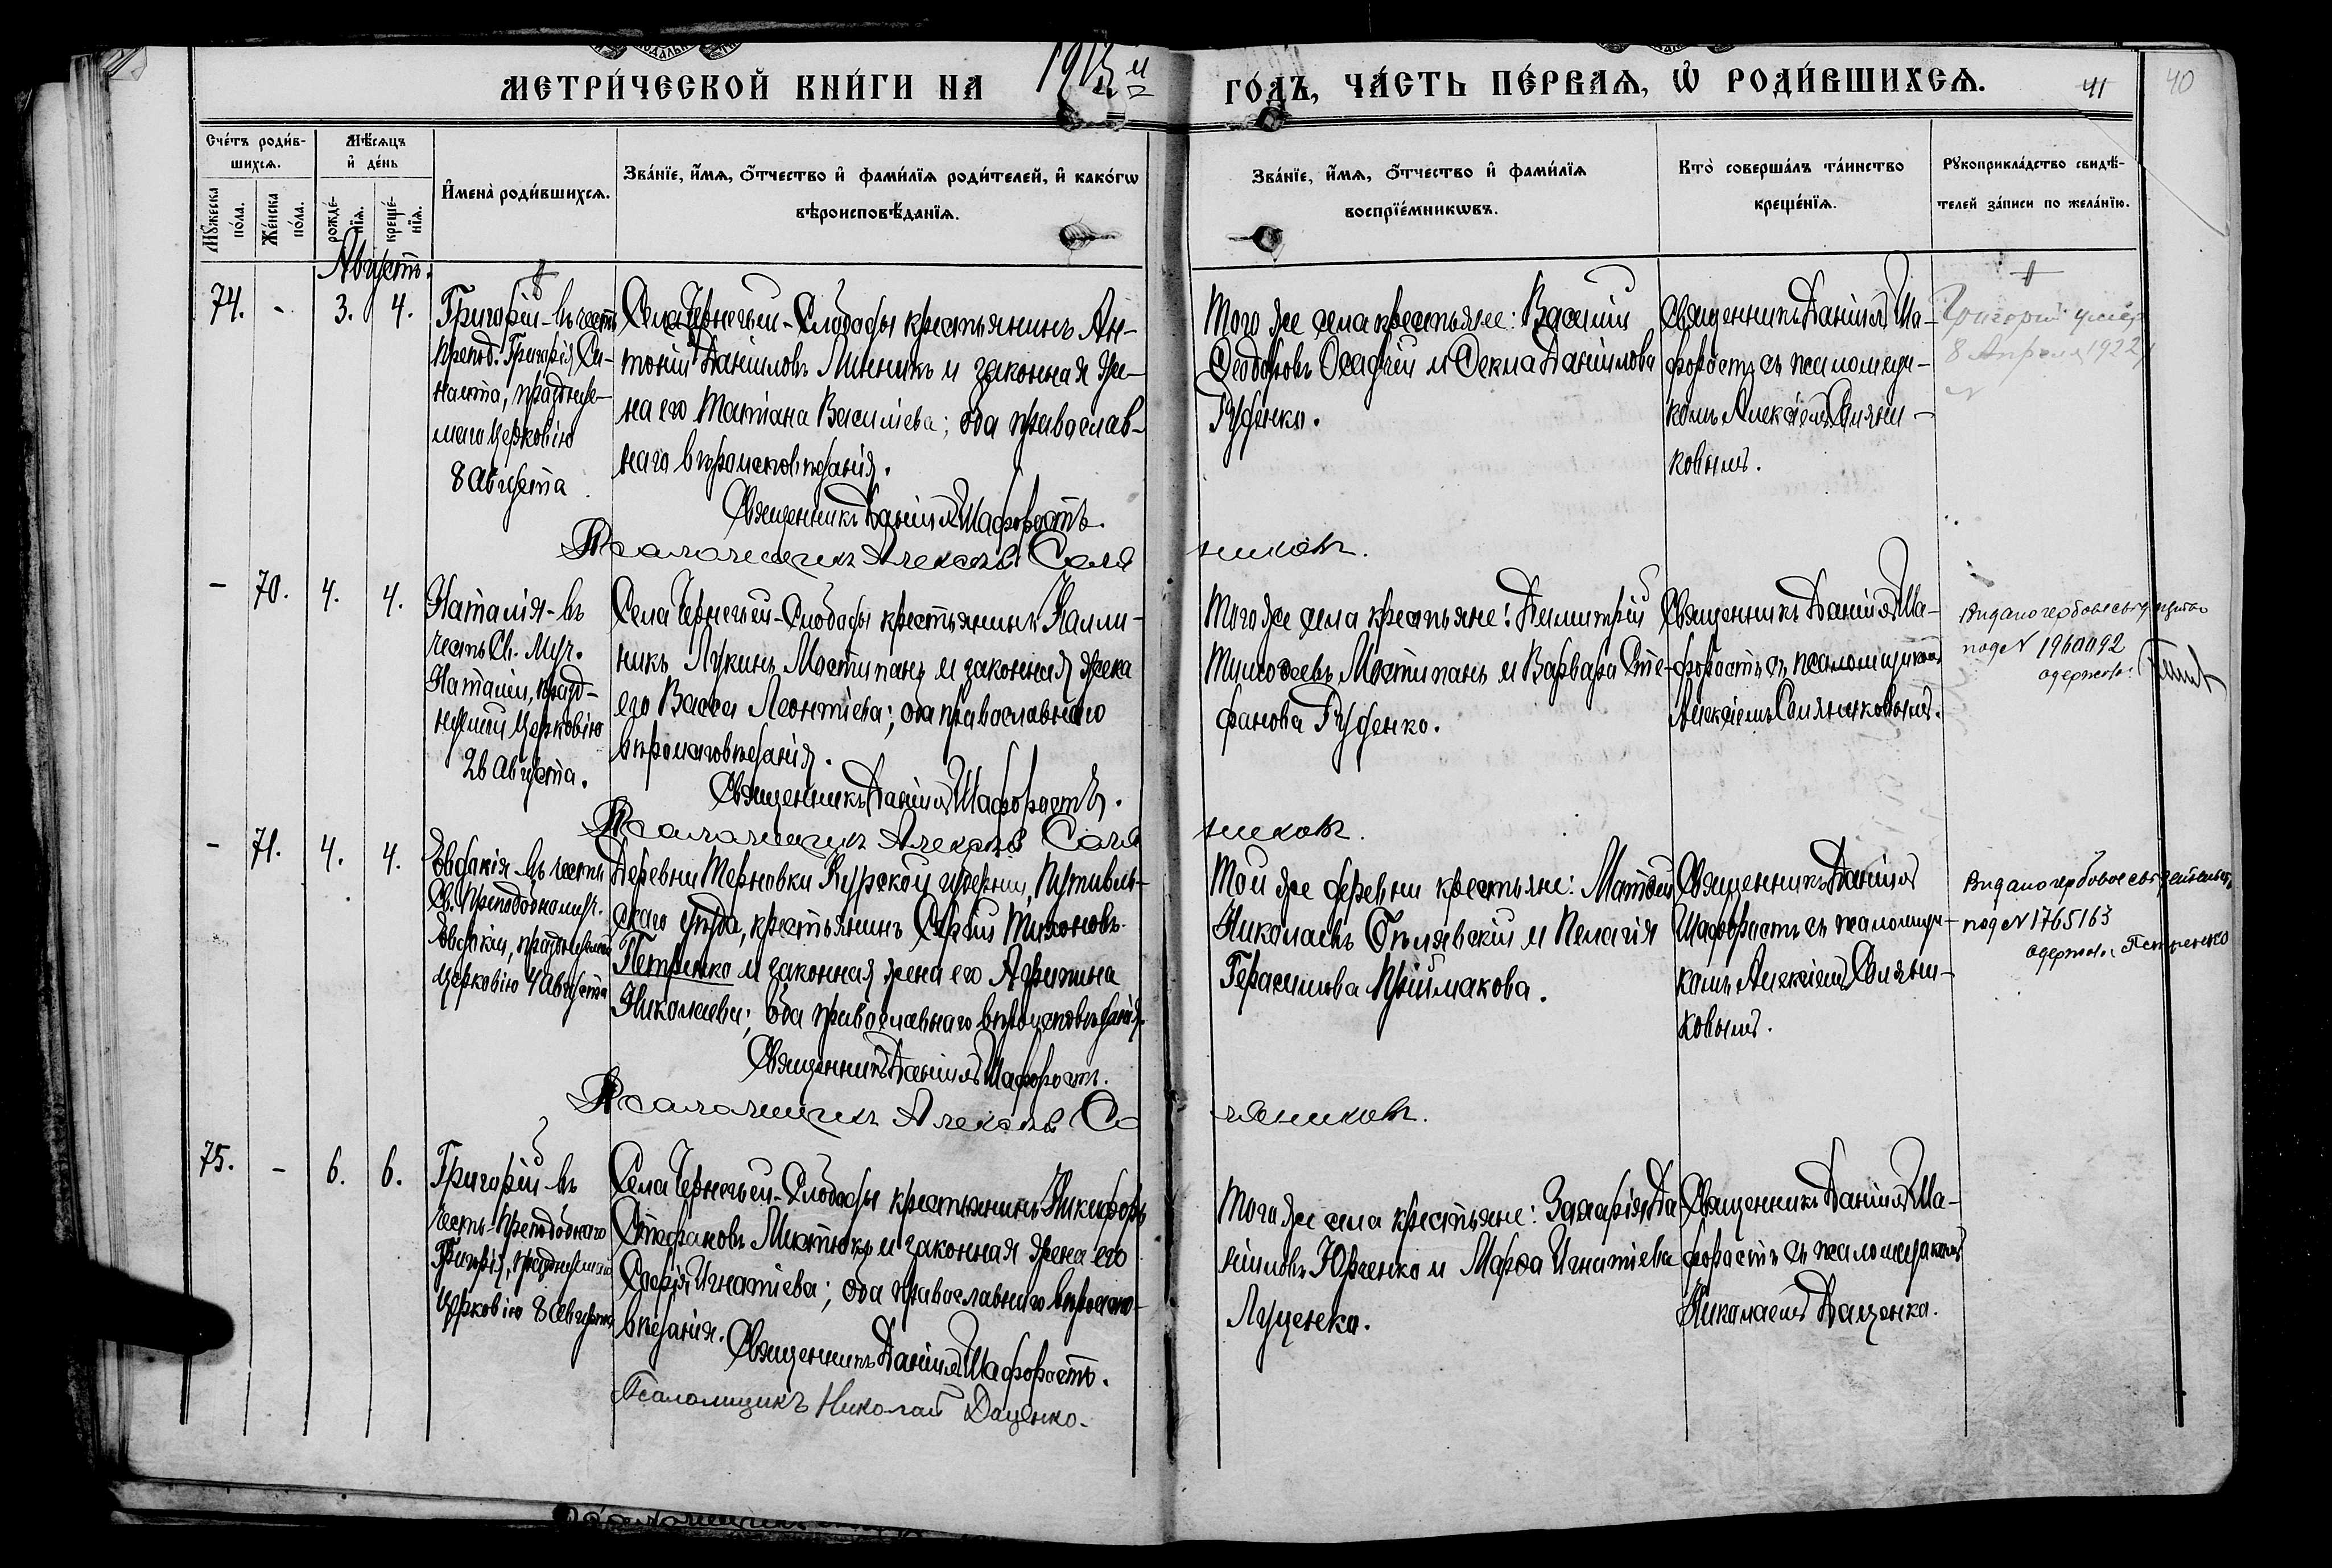 МЕТРИ́ЧЕСКОЙ КНИ́ГИ НА
ГО́ДЪ, ЧА́СТЬ ПЕ́РВАѦ, Ѿ РОДИ́ВШИХСѦ.
41
40
Сче́тъ роди́в-
шихсѧ.
Мѣ́сѧцъ
и҆ де́нь
Мꙋ́жеска
по́ла.
Же́нска
по́ла.
рожде́-
нїѧ.
креще́-
нїѧ.
И҆мена̀ роди́вшихсѧ.
Зва́нїе, и҆́мѧ, о҆́тчество и҆ фами́лїѧ роди́телей, и҆ како́гѡ
вѣроисповѣ́данїѧ.
Зва́нїе, и҆́мѧ, о҆́тчество и҆ фами́лїѧ
воспрїе́мникѡвъ.
Кто̀ соверша́лъ та́инство
креще́нїѧ.
Рꙋкоприкла́дство свидѣ́-
телей за́писи по жела́нїю.
Августъ.
74.
-
3.
4.
Григорій - въ честь
препод. Григорія Си-
наита, празднуе-
маго церковію
8 Августа
Села Чернечьей-Слободы крестьянинъ Ан-
тоній Даніиловъ Минникъ и законная же-
на его Татіана Васильева; оба православ-
наго вѣроисповѣданія.
Священникъ Даніилъ Шафоростъ.
Псаломщикъ Алексѣй Соля
никовъ.
Того же села крестьяне: Василій
Ѳеодоровъ Осадчій и Ѳекла Даніилова
Руденко.
Священникъ Даніилъ Ша-
форостъ съ псаломщи-
комъ Алексіемъ Соляни-
ковымъ.
Григорий умер
8 Апреля 1922 г
-
70.
4.
4.
Наталія - въ
честь Св. Муч.
Наталіи, празд-
нуемой церковію
26 Августа.
Села Чернечьей-Слободы крестьянинъ Калли-
никъ Лукинъ Мостипанъ и законная жена
его Васса Леонтіева; оба православнаго
вѣроисповѣданія.
Священникъ Даніилъ Шафоростъ.
Псаломщикъ Алексѣй Соля
никовъ.
Того же села крестьяне: Димитрій
Тимоѳеевъ Мостипанъ и Варвара Сте-
фанова Руденко.
Священникъ Даніилъ Ша-
форостъ съ псаломщикомъ
Алексіемъ Соляниковымъ.
Видано гербове свідоцтво
под N 1960092
одержав:
-
71.
4.
4.
Евдокія - въ честь
Св. Преподобномуч.
Евдокіи, празднуемой
церковію 4 Августа
Деревни Терновки Курской губерніи, Путивль-
скаго уѣзда, крестьянинъ Сергій Тихоновъ
Петренко и законная жена его Агрипина
Николаева; оба православнаго вѣроисповѣданія.
Священникъ Даніилъ Шафоростъ.
Псаломщикъ Алексѣй Со
ляниковъ.
Той же деревни крестьяне: Матѳей
Николаевъ Бѣлявскій и Пелагія
Герасимова Пріймакова.
Священникъ Даніилъ
Шафоростъ съ псаломщи-
комъ Алексіемъ Соляни-
ковымъ.
Видано гербовое свидетельство
под N 1765163
одержав: Петренко
75.
-
6.
6.
Григорій - въ
честь Преподобнаго
Григорія, празднуемаго
церковію 8 Августа
Села Чернечьей-Слободы крестьянинъ Никифоръ
Стефановъ Мистюкъ и законная жена его
Софія Игнатіева; оба православнаго вѣроиспо-
вѣданія.
Священникъ Даніилъ Шафоростъ.
Псаломщикъ Николай Даценко.
Того же села крестьяне: Захарія Да
ніиловъ Юрченко и Марѳа Игнатіева
Луценко.
Священникъ Даніилъ Ша-
форостъ съ псаломщикомъ
Николаемъ Даценко.